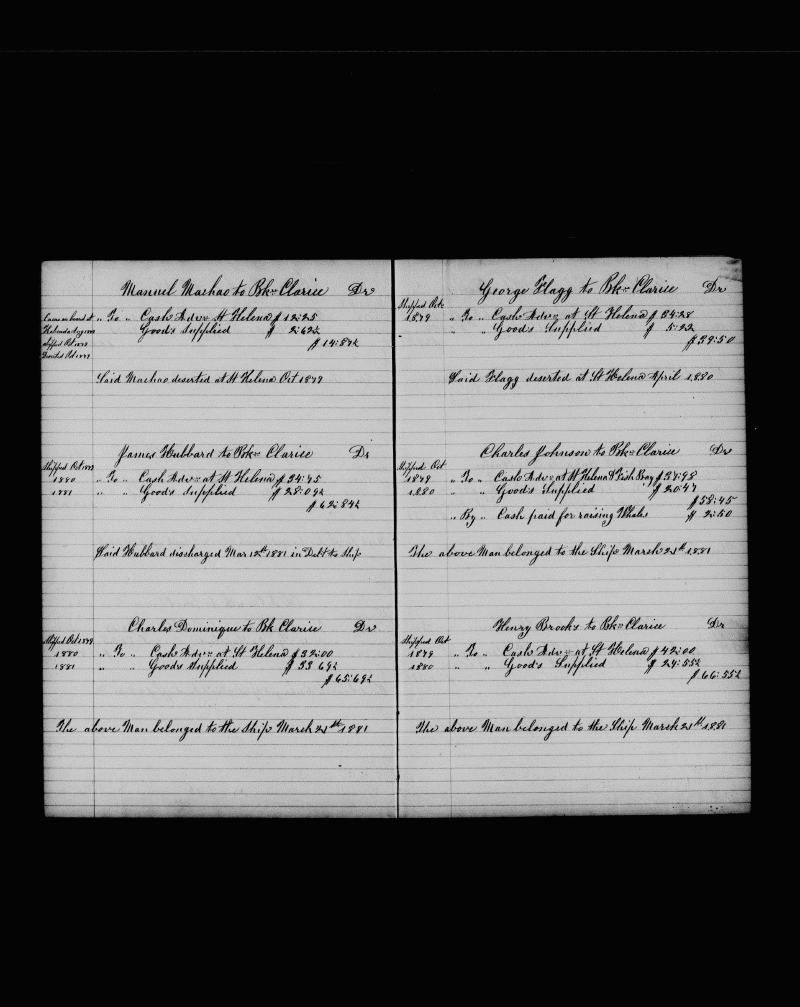 Manuel Machao to Bk Clarice Dr
Came on board at
" To " Cash Adv St Helena $ 12:25
" " Goods Supplied $ 2:62½
Shipped Oct 1879
Deserted Oct 1879
$ 14:87½
Said Machao deserted at St Helena Oct 1879
James Hubbard to Bk Clarice Dr
Shipped Oct 1879
1880 " To " Cash Adv at St Helena $ 34:75
1881 " " Goods Supplied $ 28:09½
$ 62:84½
Said Hubbard discharged Mar 12th 1881 in Debt to Ship
Charles Dominique to Bk Clarice Dr
Shipped Oct 1879
1880 " To " Cash Adv at St Helena $ 32:00
1881 " " Goods Supplied $ 33 69½
$ 65:69½
The above Man belonged to the Ship March 21st 1881
George Flagg to Bk Clarice Dr
Shipped Oct
1879 " To " Cash Adv at St Helena $ 34:28
" " Goods Supplied $ 5:22
$ 39:50
Said Flagg deserted at St Helena April 1880
Charles Johnson to Bk Clarice Dr
Shipped Oct
1879 " To " Cash Adv at St Helena & Fish Bay $ 37:98
1880 " " Goods Supplied $ 20:47
$ 58:45
" By " Cash paid for raising Whales $ 2:50
The above Man belonged to the Ship March 21st 1881
Henry Brooks to Bk Clarice Dr
Shipped Oct
1879 " To " Cash Adv at St Helena $ 42:00
1880 " " Goods Supplied $ 24:55½
$ 66:55½
The above Man belonged to the Ship March 21st 1881